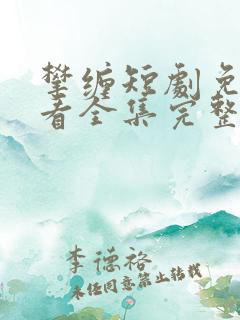 攀缠短劇免
看全集完整
李德裕
未经同意禁止转载